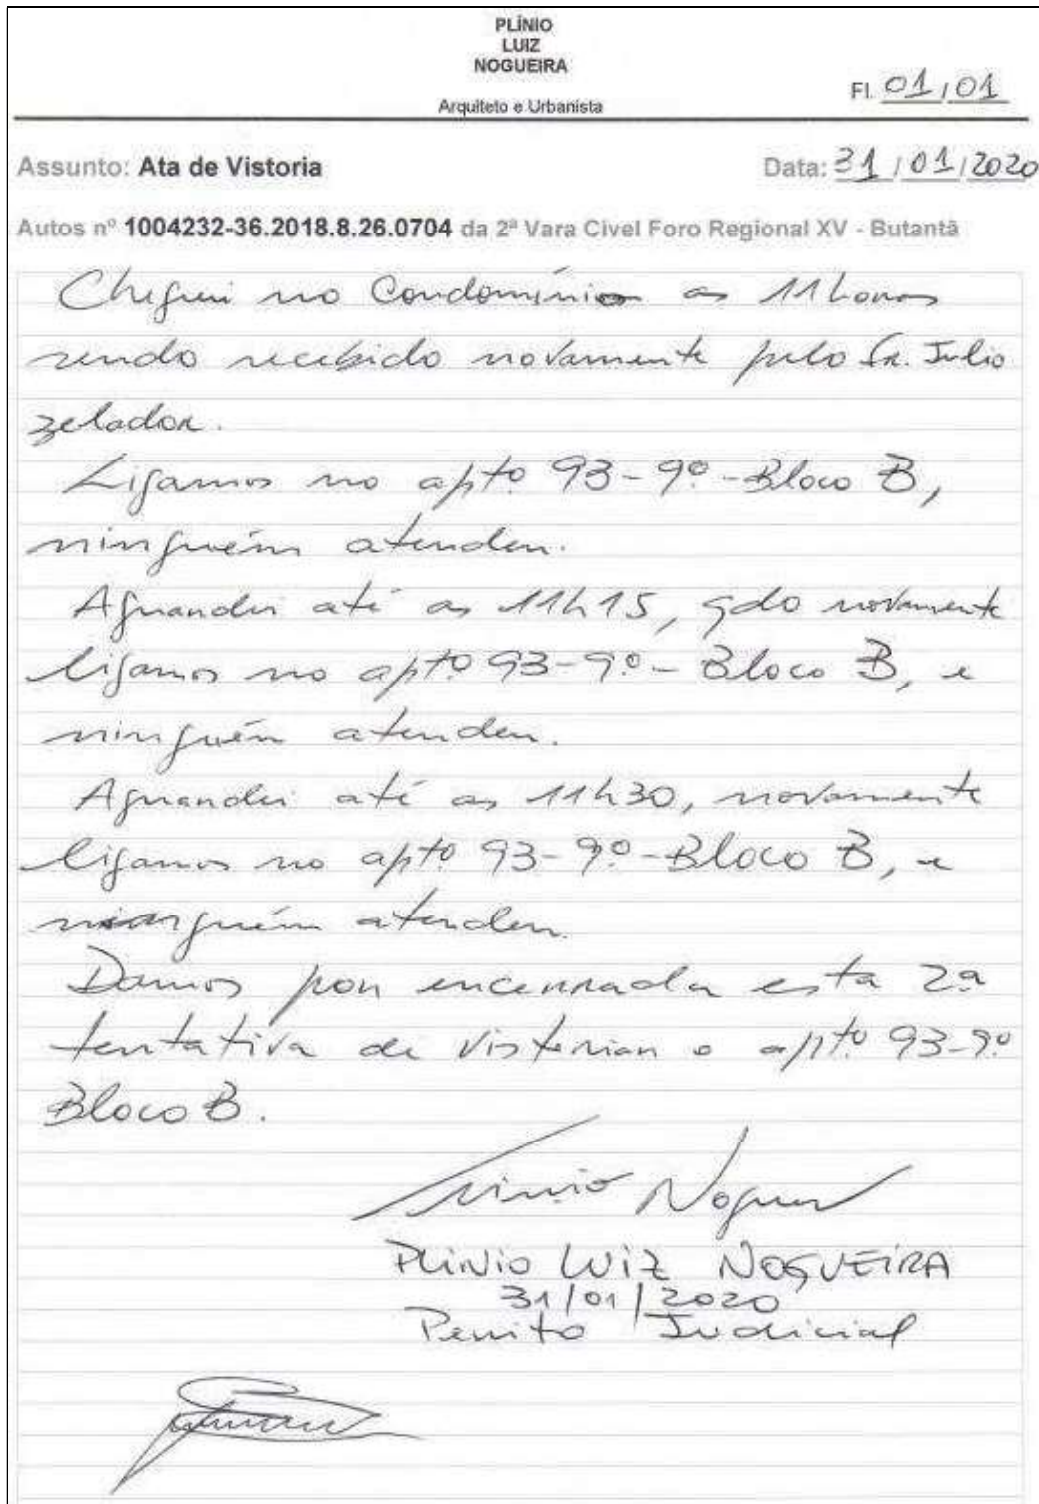 PLÍNIO
LUIZ
NOGUEIRA
Arquiteto e Urbanista
Fl. 01/01
Assunto: Ata de Vistoria
Data: 31/01/2020
Autos nº 1004232-36.2018.8.26.0704 da 2ª Vara Civel Foro Regional XV - Butantã
Cheguei no Condomínio as 11 horas
sendo recebido novamente pelo Sr. Julio
zelador.
Ligamos no aptº 93-9º-Bloco B,
ninguém atendeu.
Aguardei até as 11h15, qdo novamente
ligamos no aptº 93-9º-Bloco B, e
ninguém atendeu.
Aguardei até as 11h30, novamente
ligamos no aptº 93-9º-Bloco B, e
ninguém atendeu.
Damos por encerrada esta 2ª
tentativa de vistoriar o aptº 93-9º
Bloco B.
Plínio Nogueira
PLINIO LUIZ NOGUEIRA
31/01/2020
Perito Judicial